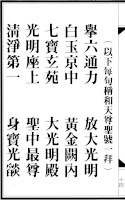 十四
（以下每句稱和天尊聖號一拜）
擧六通力　放大光明
白玉京中　黃金闕內
七寶玄苑　大光明殿
光明座上　聖中最尊
清淨第一　身寶光燄